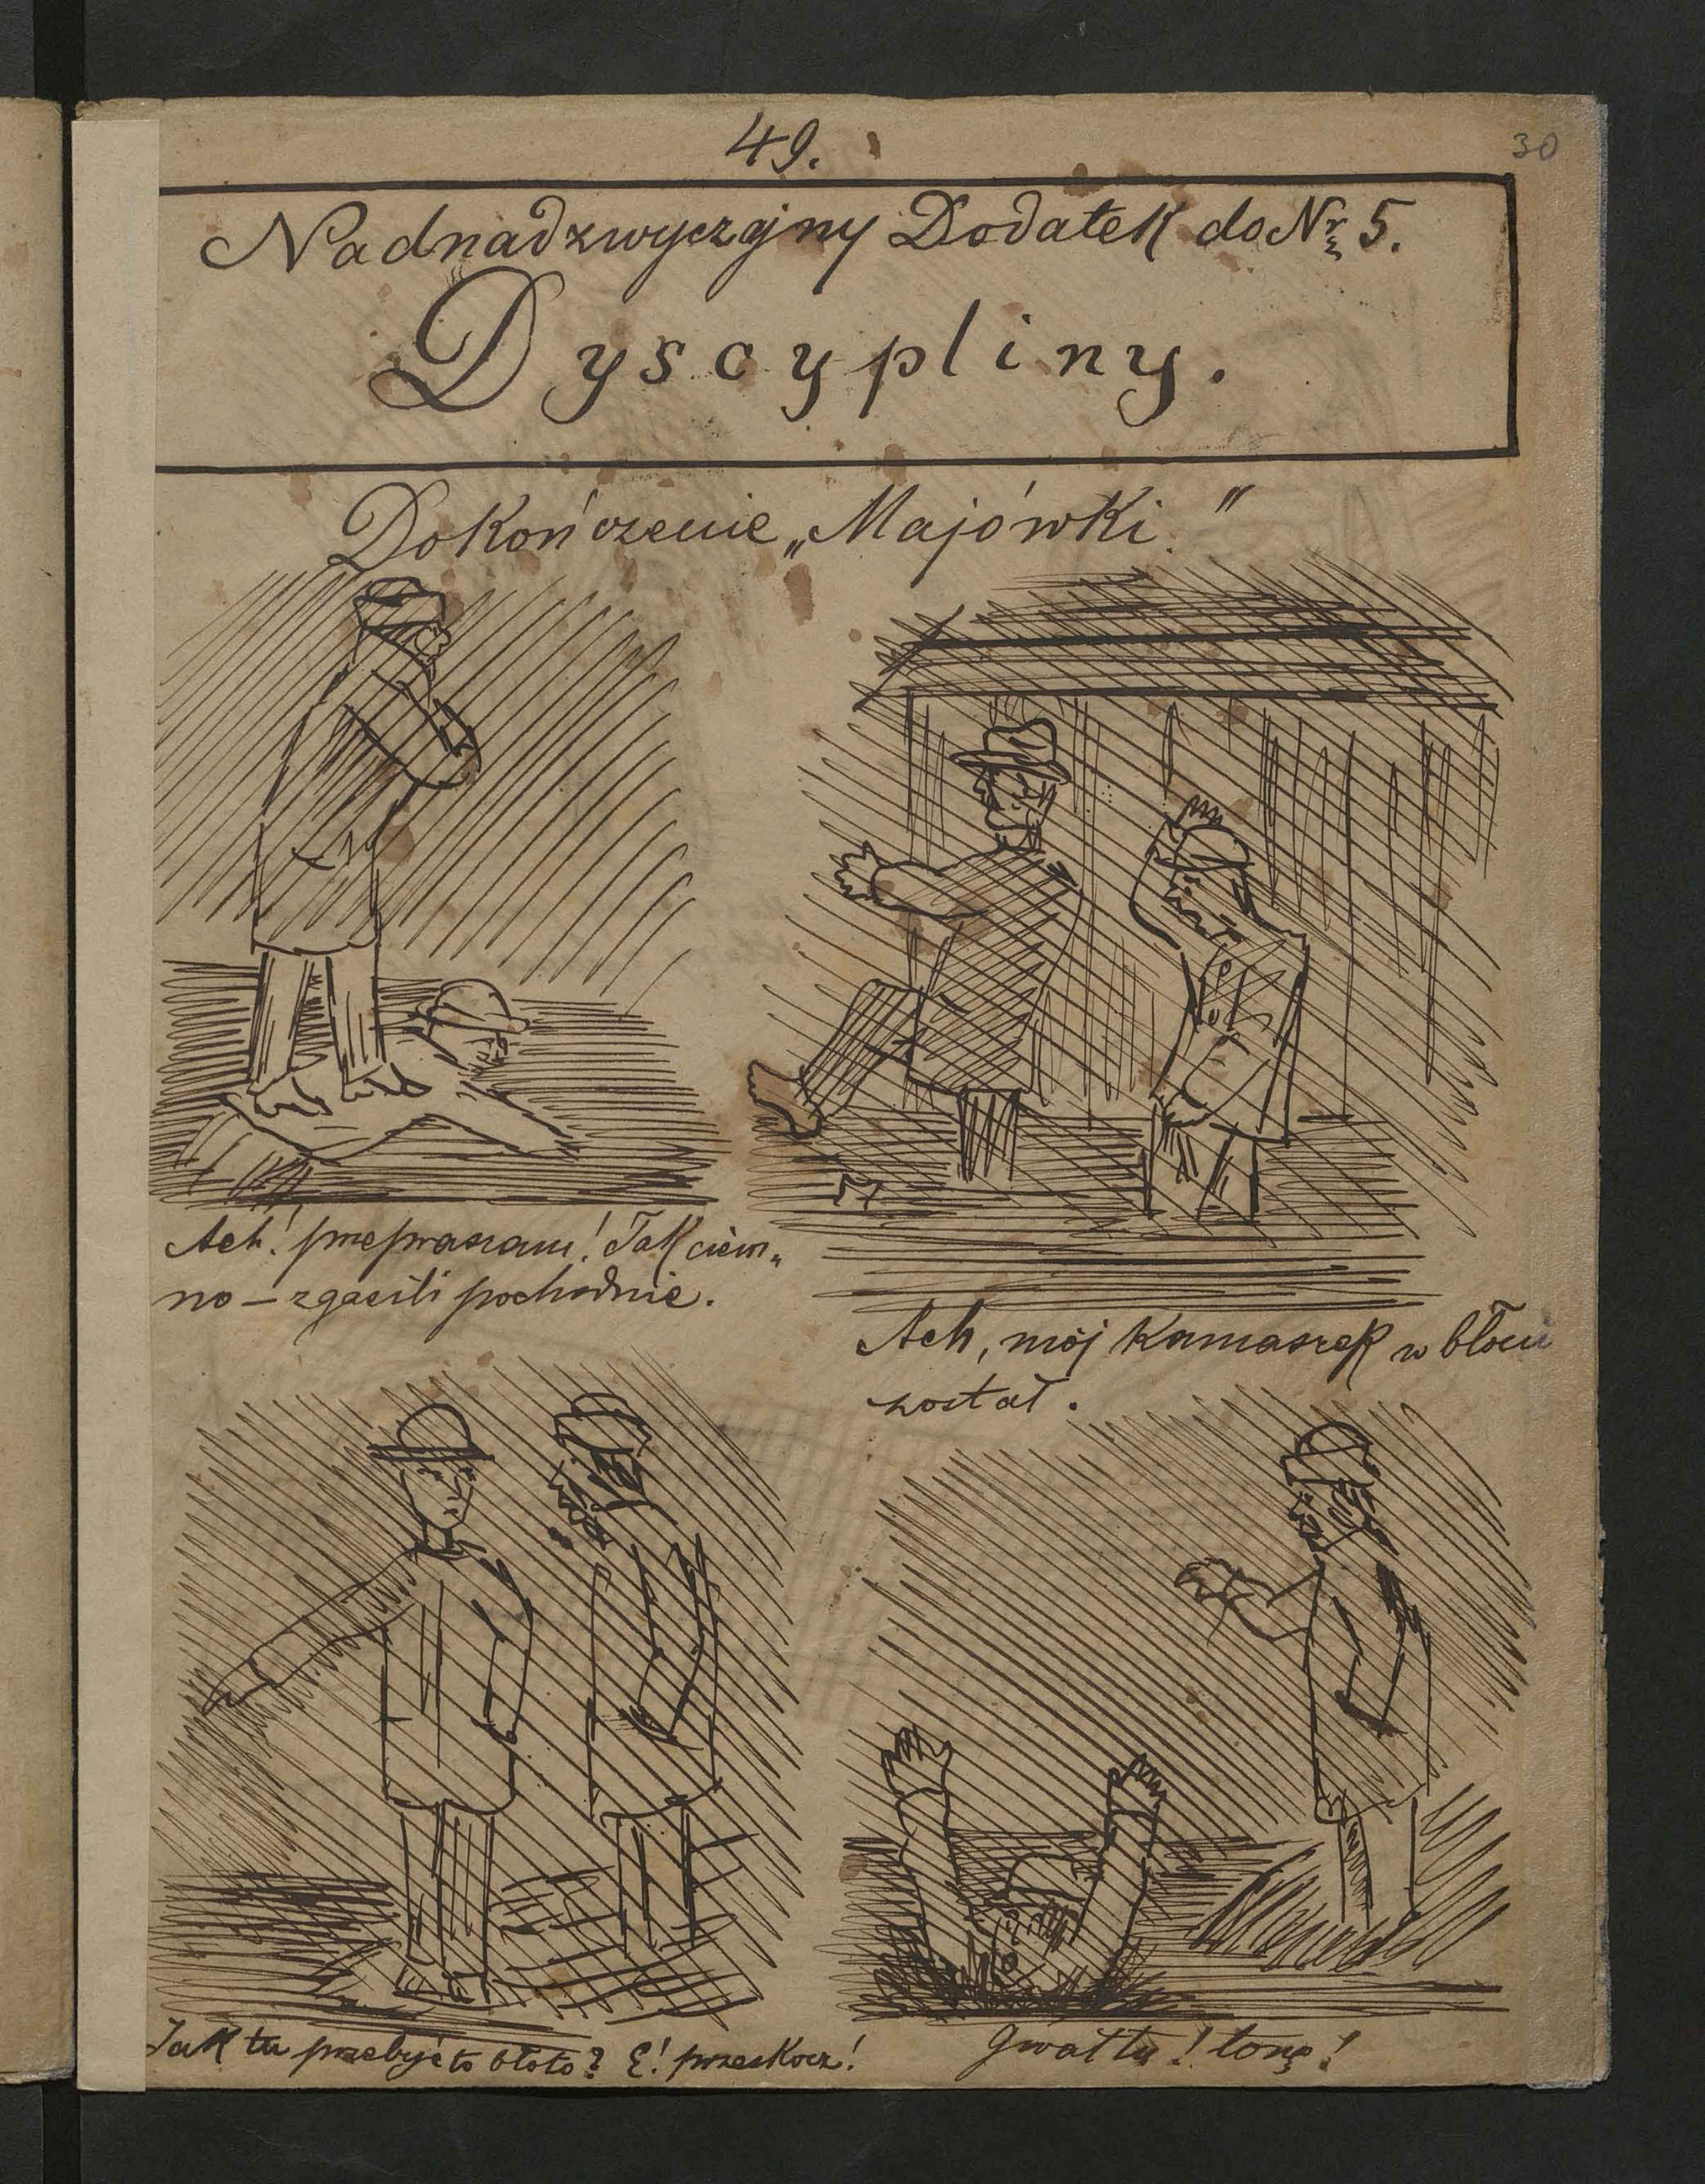 49.
30
Nadnadzwyczajny Dodatek do Nr 5.
Dyscypliny.
Dokończenie „Majówki."
Ach! przepraszam! Tak ciem„
no – zgasili pochodnie.
Ach, mój kamaszek w błocie
został.
Jak tu przebyć to błoto? E! przeskocz!
Gwałtu! tonę!